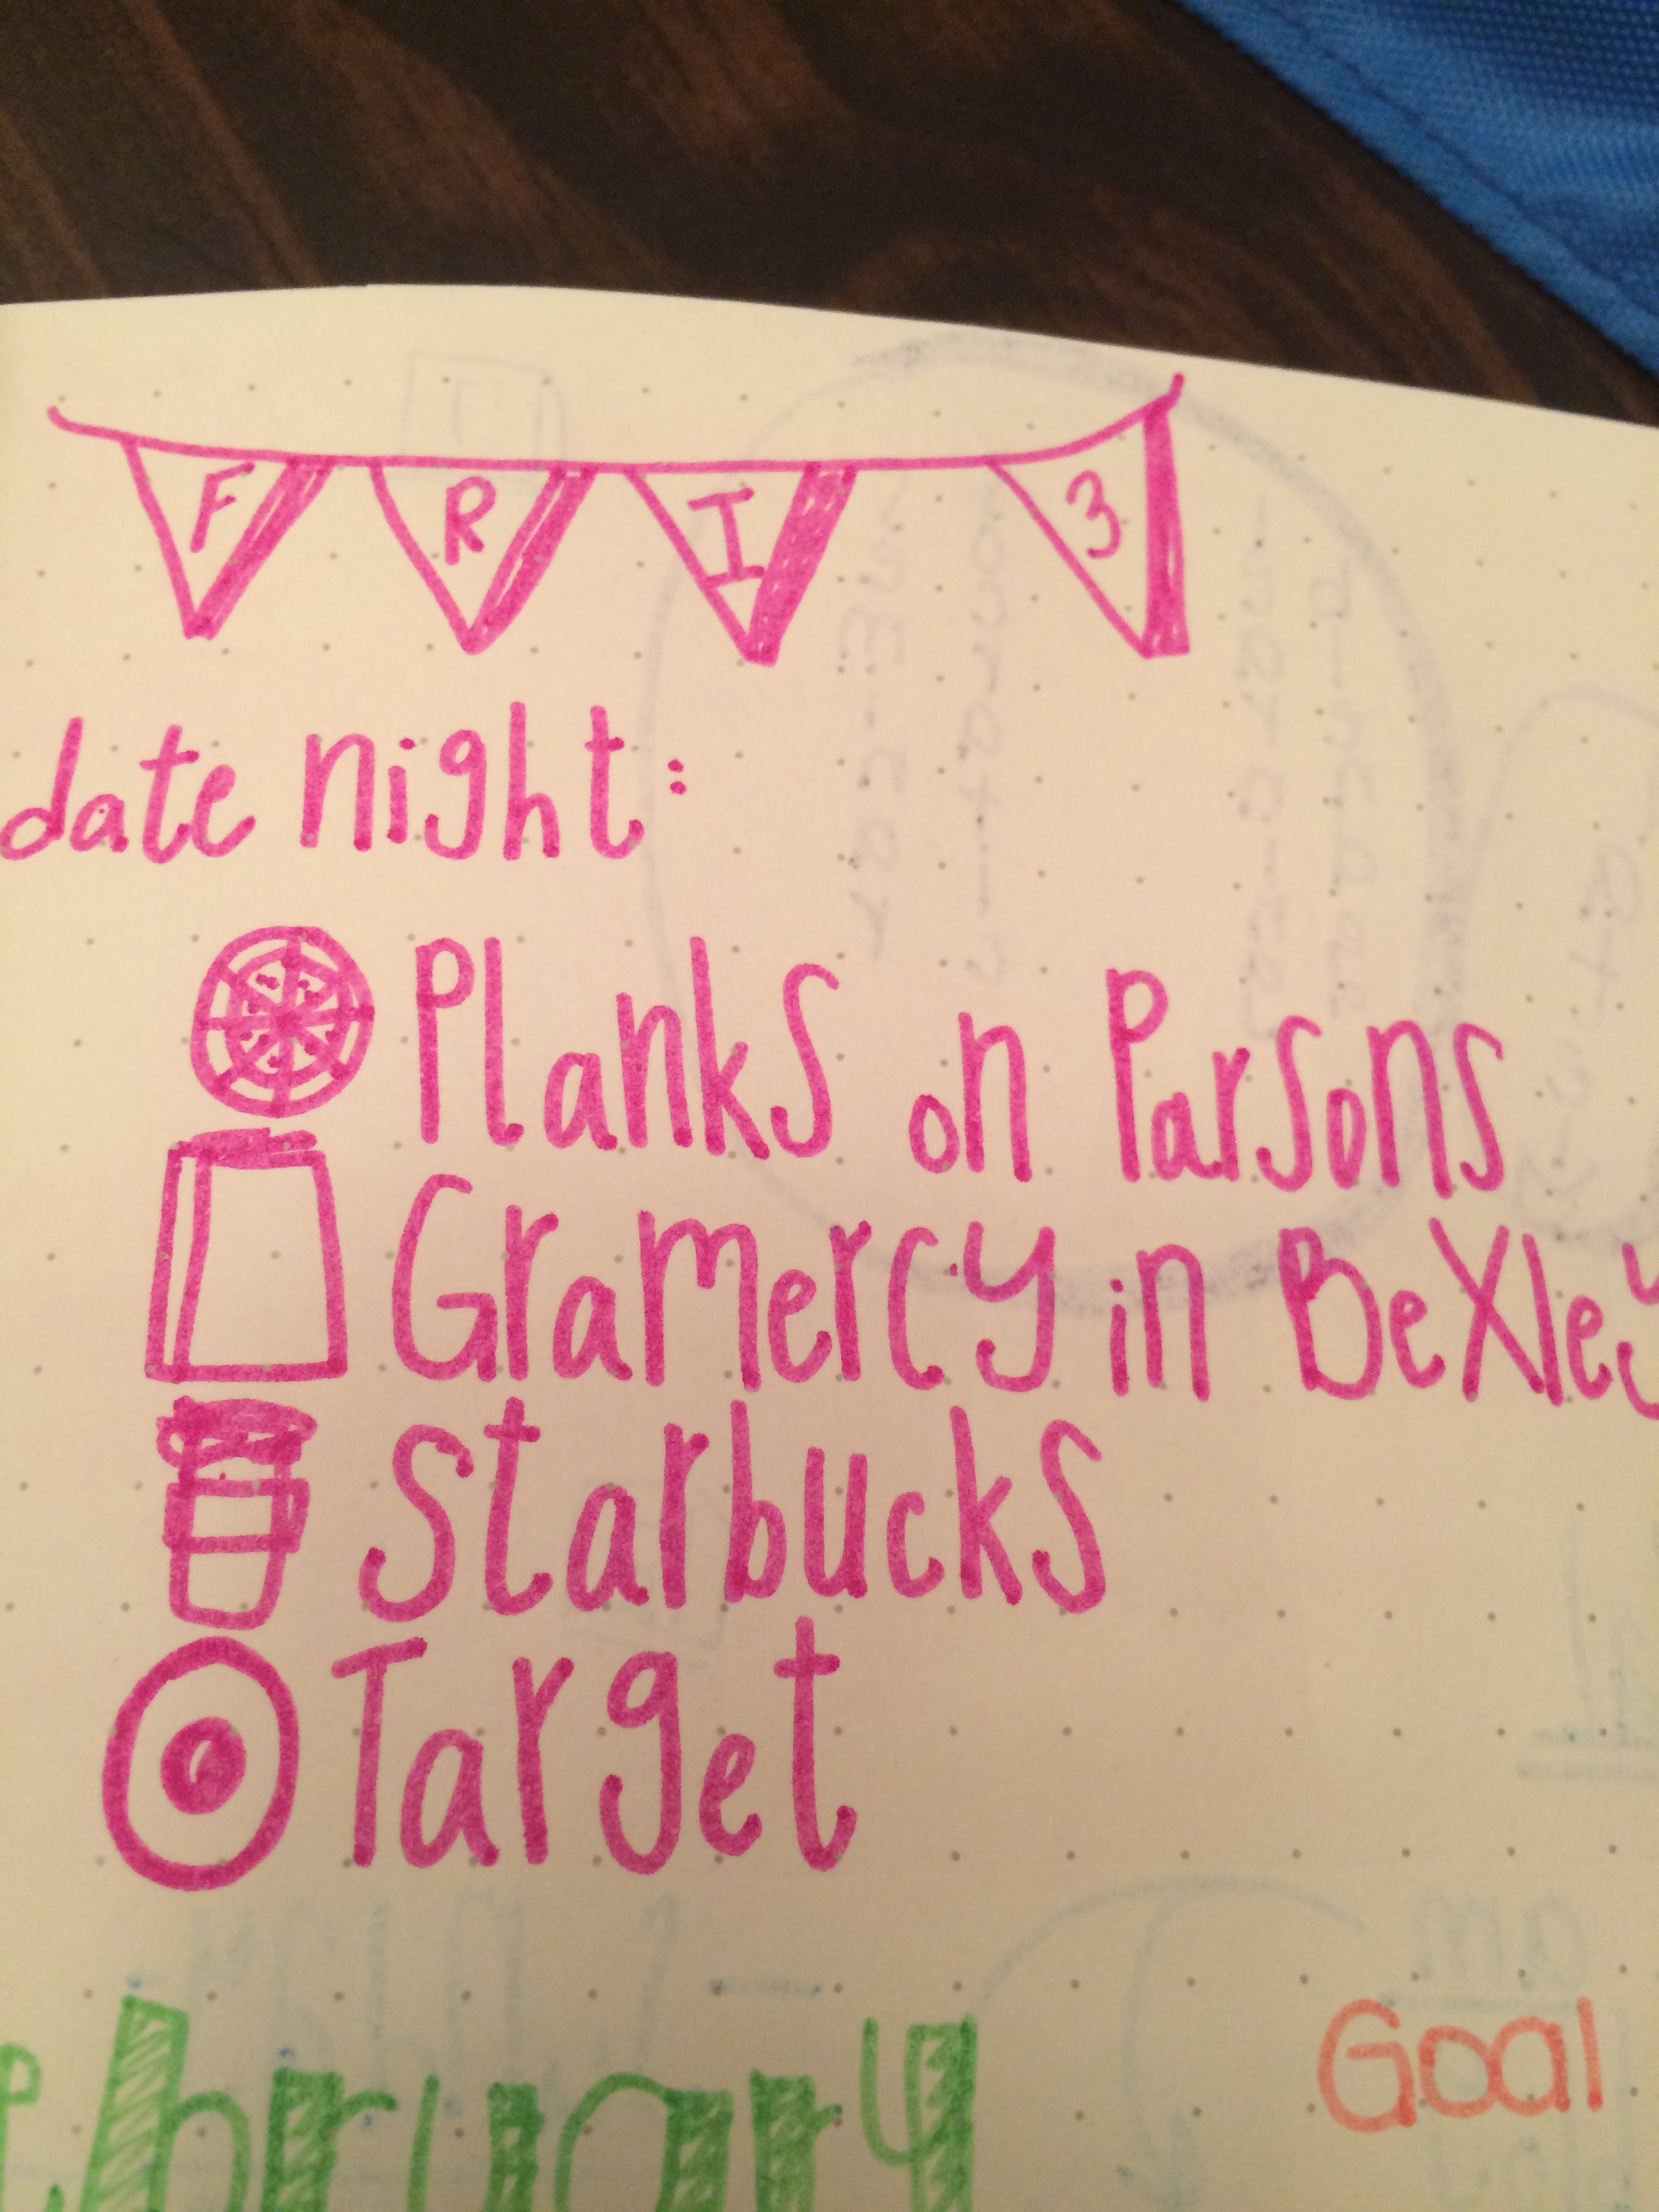 FRI 3
date night:
Planks on Parsons
Gramercy in Bexley
Starbucks
Target
ebruary
Goal